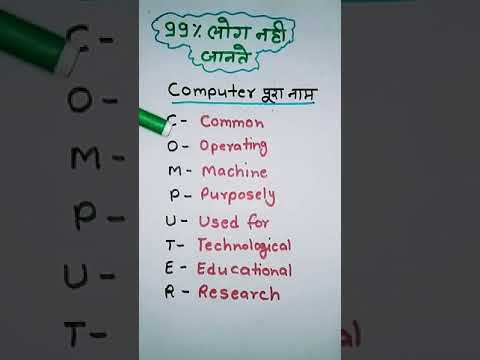 99% लोग नही
जानते
Computer पूरा नाम
C - Common
O - Operating
M - Machine
P - Purposely
U - Used for
T - Technological
E - Educational
R - Research